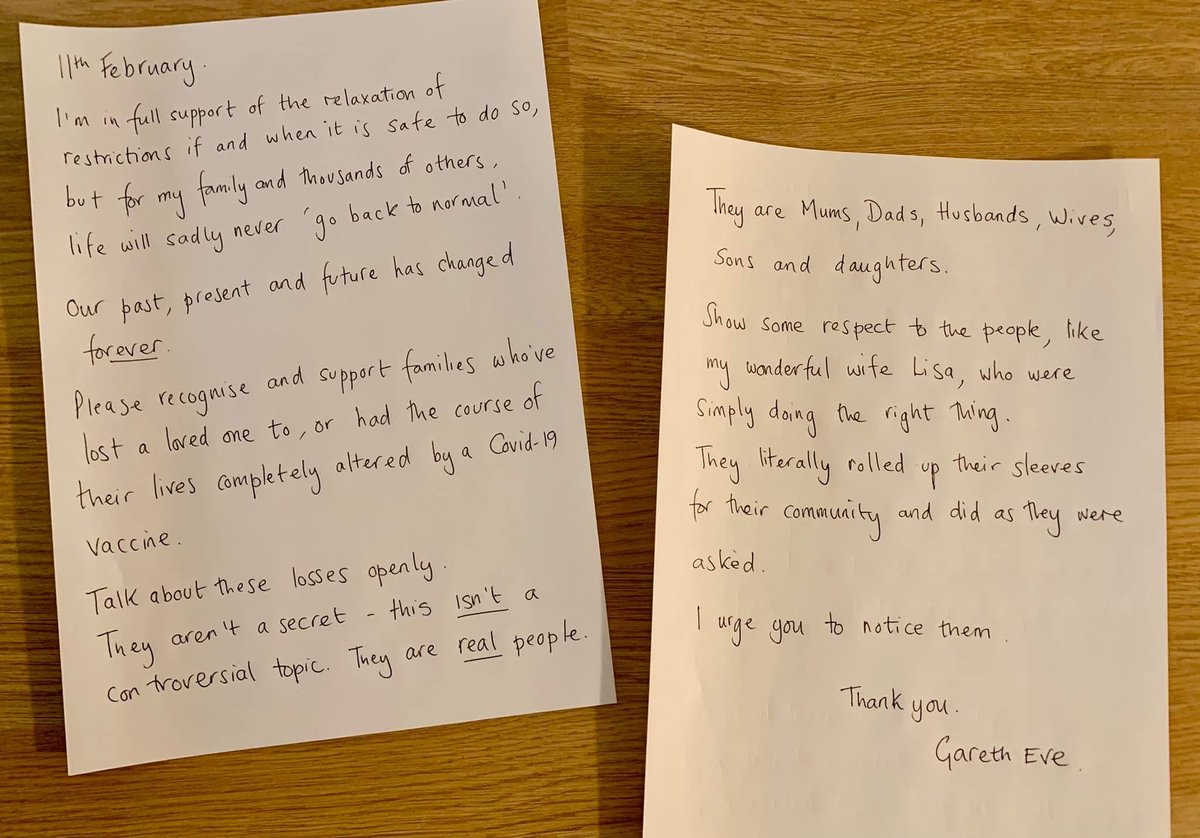 11th February.
I'm in full support of the relaxation of
restrictions if and when it is safe to do so,
but for my family and thousands of others,
life will sadly never 'go back to normal'.
Our past, present and future has changed
forever.
Please recognise and support families who've
lost a loved one to, or had the course of
their lives completely altered by a Covid-19
vaccine.
Talk about these losses openly.
They aren't a secret - this isn't a
controversial topic. They are real people.
They are Mums, Dads, Husbands, Wives,
Sons and daughters.
Show some respect to the people, like
my wonderful wife Lisa, who were
simply doing the right thing.
They literally rolled up their sleeves
for their community and did as they were
asked.
I urge you to notice them.
Thank you.
Gareth Eve.